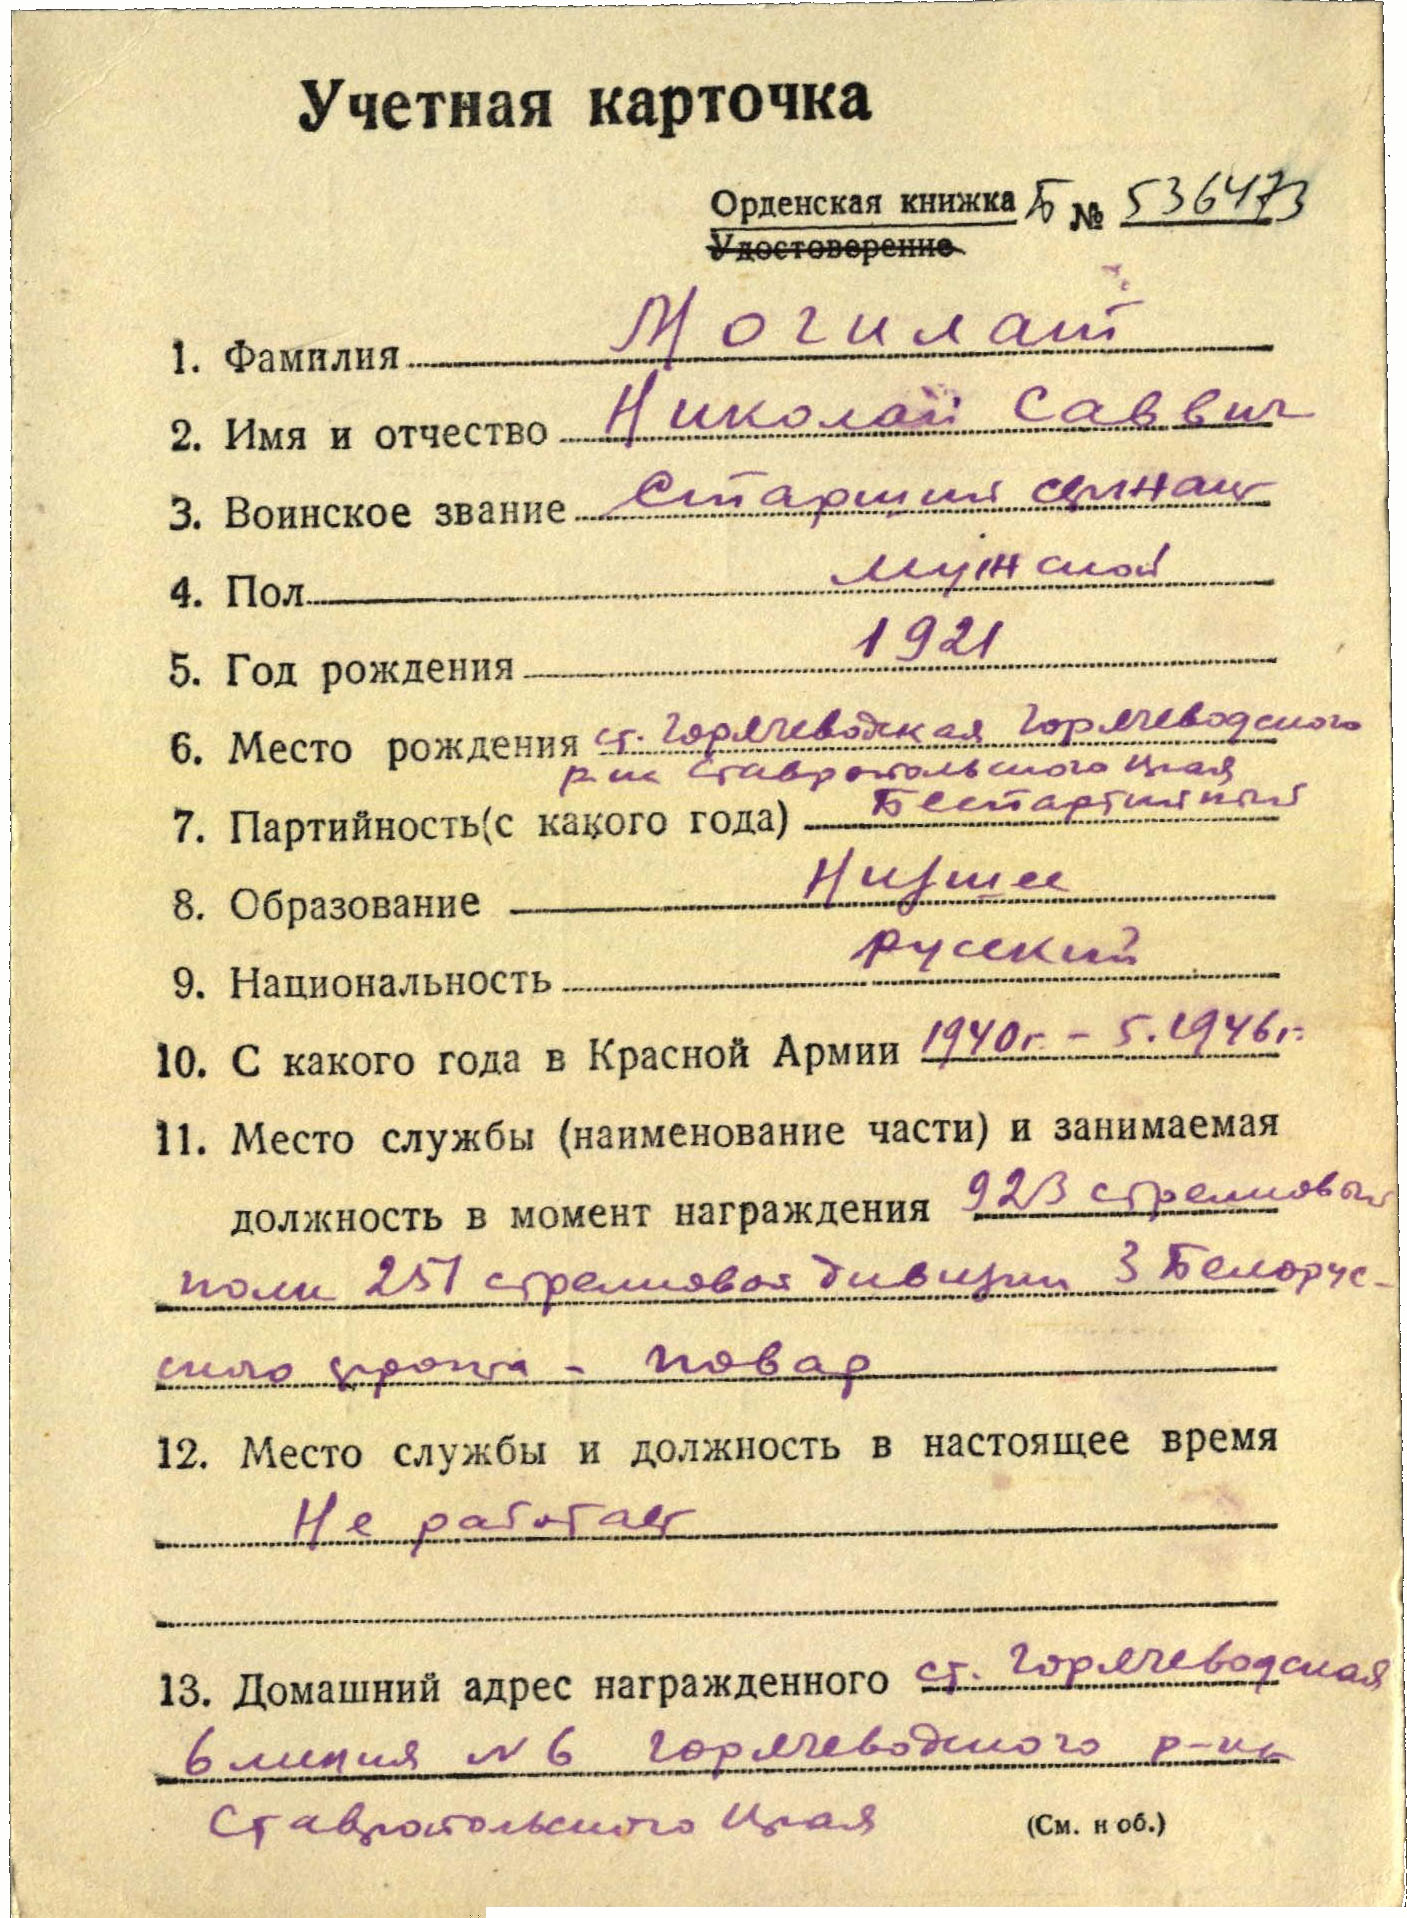 Учетная карточка
Орденская книжка Б № 536473
Удостоверение
1. Фамилия Могилат
2. Имя и отчество Николай Саввич
3. Воинское звание Старший сержант
4. Пол мужской
5. Год рождения 1921
6. Место рождения ст. Горячеводская Горячеводского
р-на Ставропольского края
7. Партийность (с какого года) Беспартийный
8. Образование Низшее
9. Национальность русский
10. С какого года в Красной Армии 1940г. - 5.1946г.
11. Место службы (наименование части) и занимаемая
должность в момент награждения 923 стрелковый
полк 251 стрелковая дивизии 3 Белорус-
ского фронта - повар
12. Место службы и должность в настоящее время
Не работает
13. Домашний адрес награжденного ст. Горячеводская
6 линия № 6 Горячеводского р-на
Ставропольского края
(См. н об.)